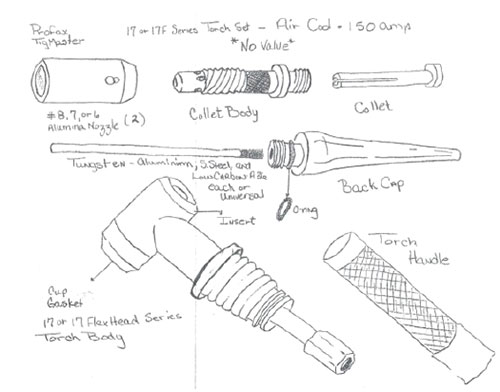 Profax
TigMaster
17 or 17F Series Torch Set - Air Cool - 150 amp
*No Value*
#8, 7, or 6
Alumina Nozzle (2)
Collet Body
Collet
Tungsten - Aluminim, S.Steel, and
Low Carbon
each or
Universal
Back Cap
Insert
Oring
Torch
Handle
Cup
Gasket
17 or 17 FlexHead Series
Torch Body